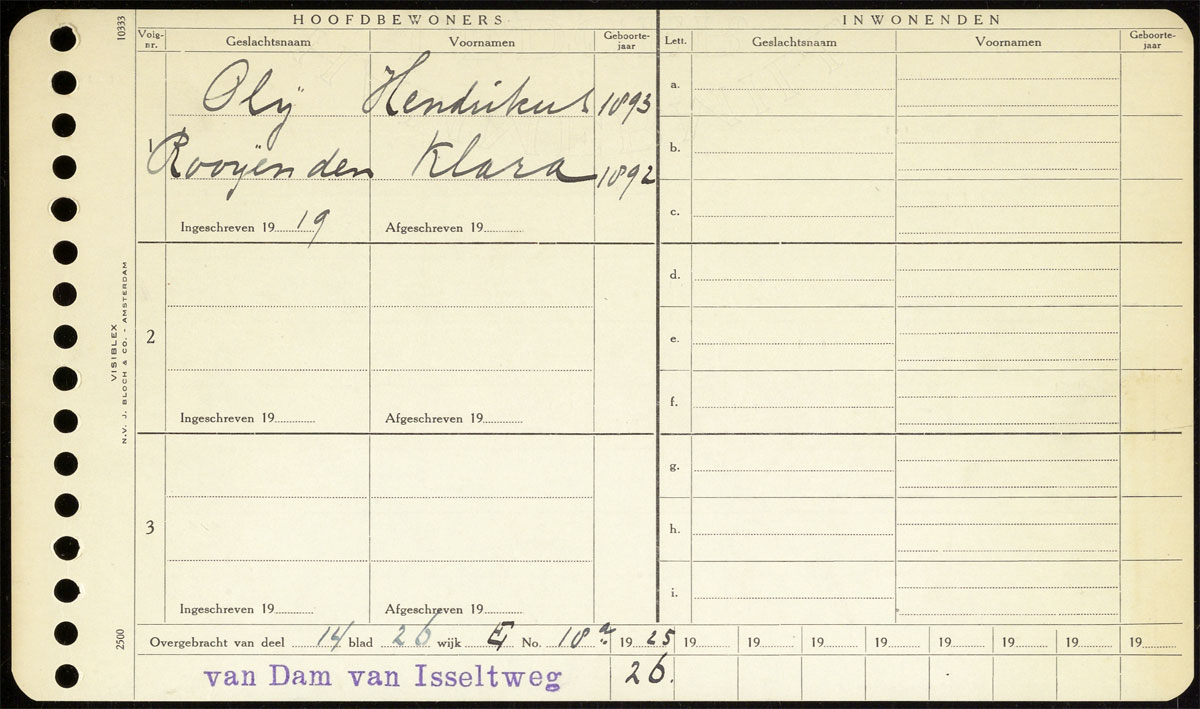 HOOFDBEWONERS
INWONENDEN
Volg-nr. Geslachtsnaam Voornamen Geboorte-jaar
Lett. Geslachtsnaam Voornamen Geboorte-jaar
Olij Hendrikus 1893
1 Rooijen den Klara 1892
Ingeschreven 19 19 Afgeschreven 19
2
Ingeschreven 19 Afgeschreven 19
3
Ingeschreven 19 Afgeschreven 19
a.
b.
c.
d.
e.
f.
g.
h.
i.
Overgebracht van deel 14 blad 26 wijk E No. 18a 19 25 19 19 19 19 19 19 19 19
van Dam van Isseltweg 26.
10333
VISIBLEX
N.V. J. BLOCH & CO. - AMSTERDAM
2500